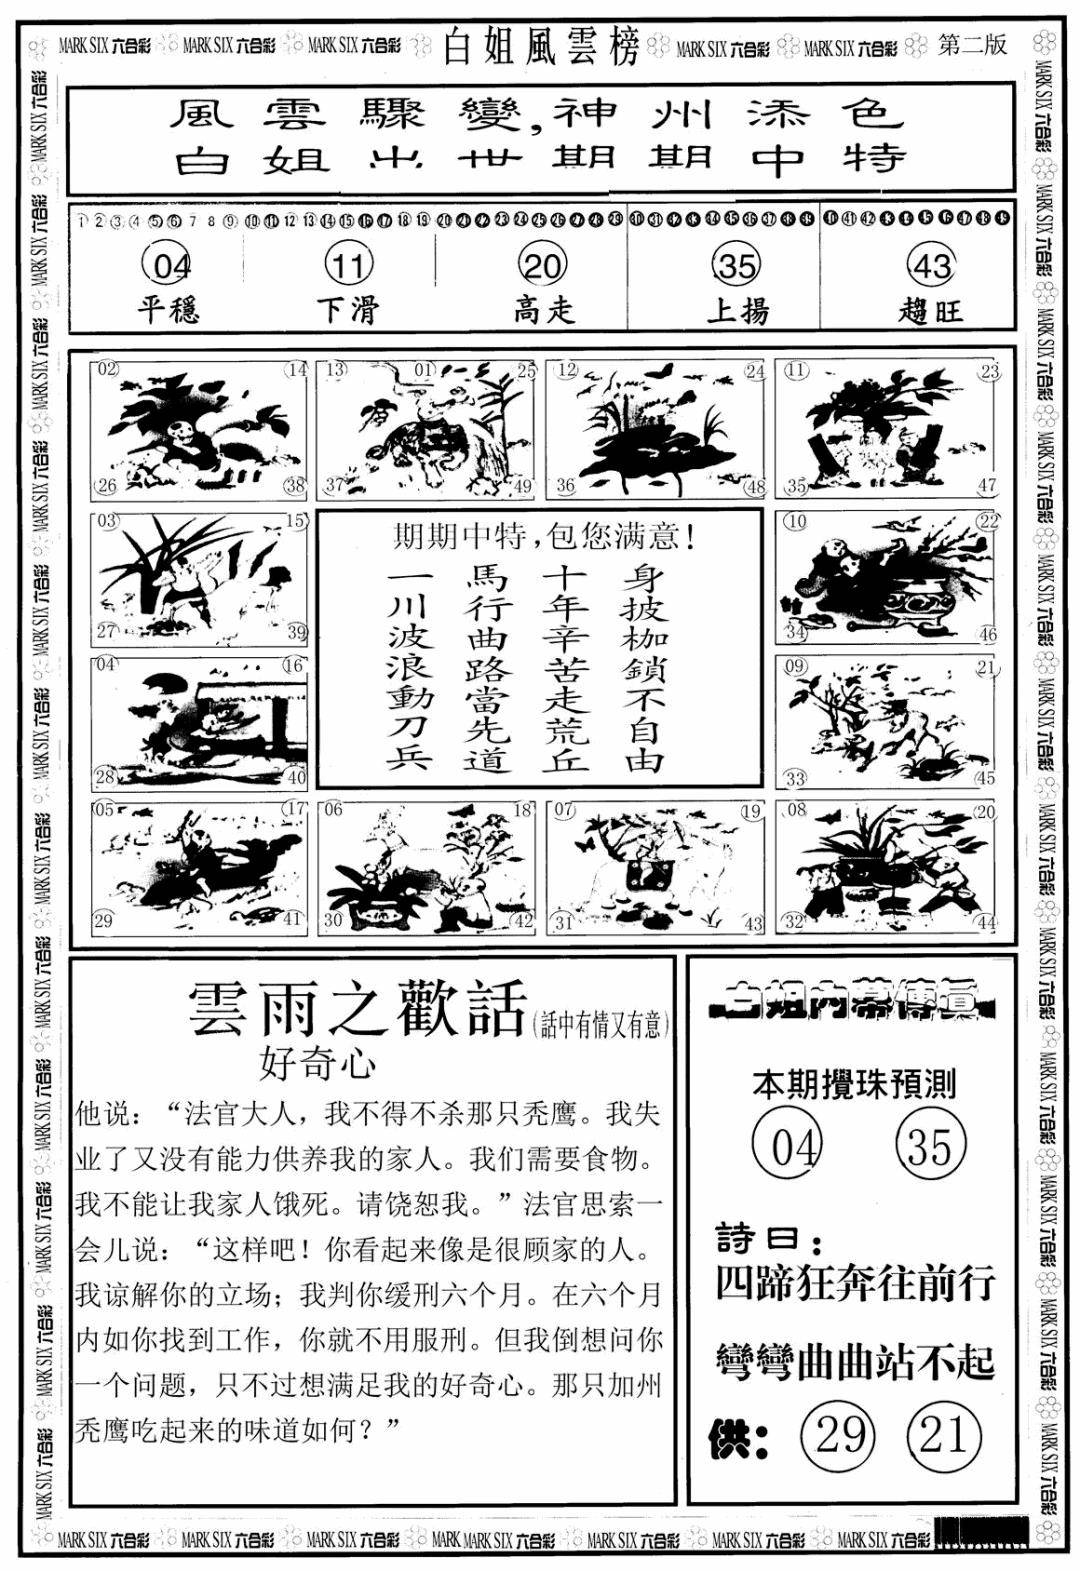 MARK SIX 六合彩 MARK SIX 六合彩 MARK SIX 六合彩 白姐風雲榜 MARK SIX 六合彩 MARK SIX 六合彩 第二版
風雲驟變,神州添色
白姐出世期期中特
1 2 3 4 5 6 7 8 9 10 11 12 13 14 15 16 17 18 19 20 21 22 23 24 25 26 27 28 29 30 31 32 33 34 35 36 37 38 39 40 41 42 43 44 45 46 47 48 49
04 11 20 35 43
平穩 下滑 高走 上揚 趨旺
02 14 13 01 25 12 24 11 23
26 38 37 49 36 48 35 47
03 15
27 39
04 16
28 40
期期中特,包您满意!
身披枷鎖不自由
十年辛苦走荒丘
馬行曲路當先道
一川波浪動刀兵
10 22
34 46
09 21
33 45
05 17 06 18 07 19 08 20
29 41 30 42 31 43 32 44
雲雨之歡話(話中有情又有意)
好奇心
他说：“法官大人，我不得不杀那只秃鹰。我失
业了又没有能力供养我的家人。我们需要食物。
我不能让我家人饿死。请饶恕我。”法官思索一
会儿说：“这样吧！你看起来像是很顾家的人。
我谅解你的立场；我判你缓刑六个月。在六个月
内如你找到工作，你就不用服刑。但我倒想问你
一个问题，只不过想满足我的好奇心。那只加州
秃鹰吃起来的味道如何？”
白姐内幕傳真
本期攪珠預測
04 35
詩曰：
四蹄狂奔往前行
彎彎曲曲站不起
供： 29 21
MARK SIX 六合彩 MARK SIX 六合彩 MARK SIX 六合彩 MARK MARK SIX 六合彩 MARK SIX 六合彩 MARK SIX 六合彩 MARK SIX 六合彩